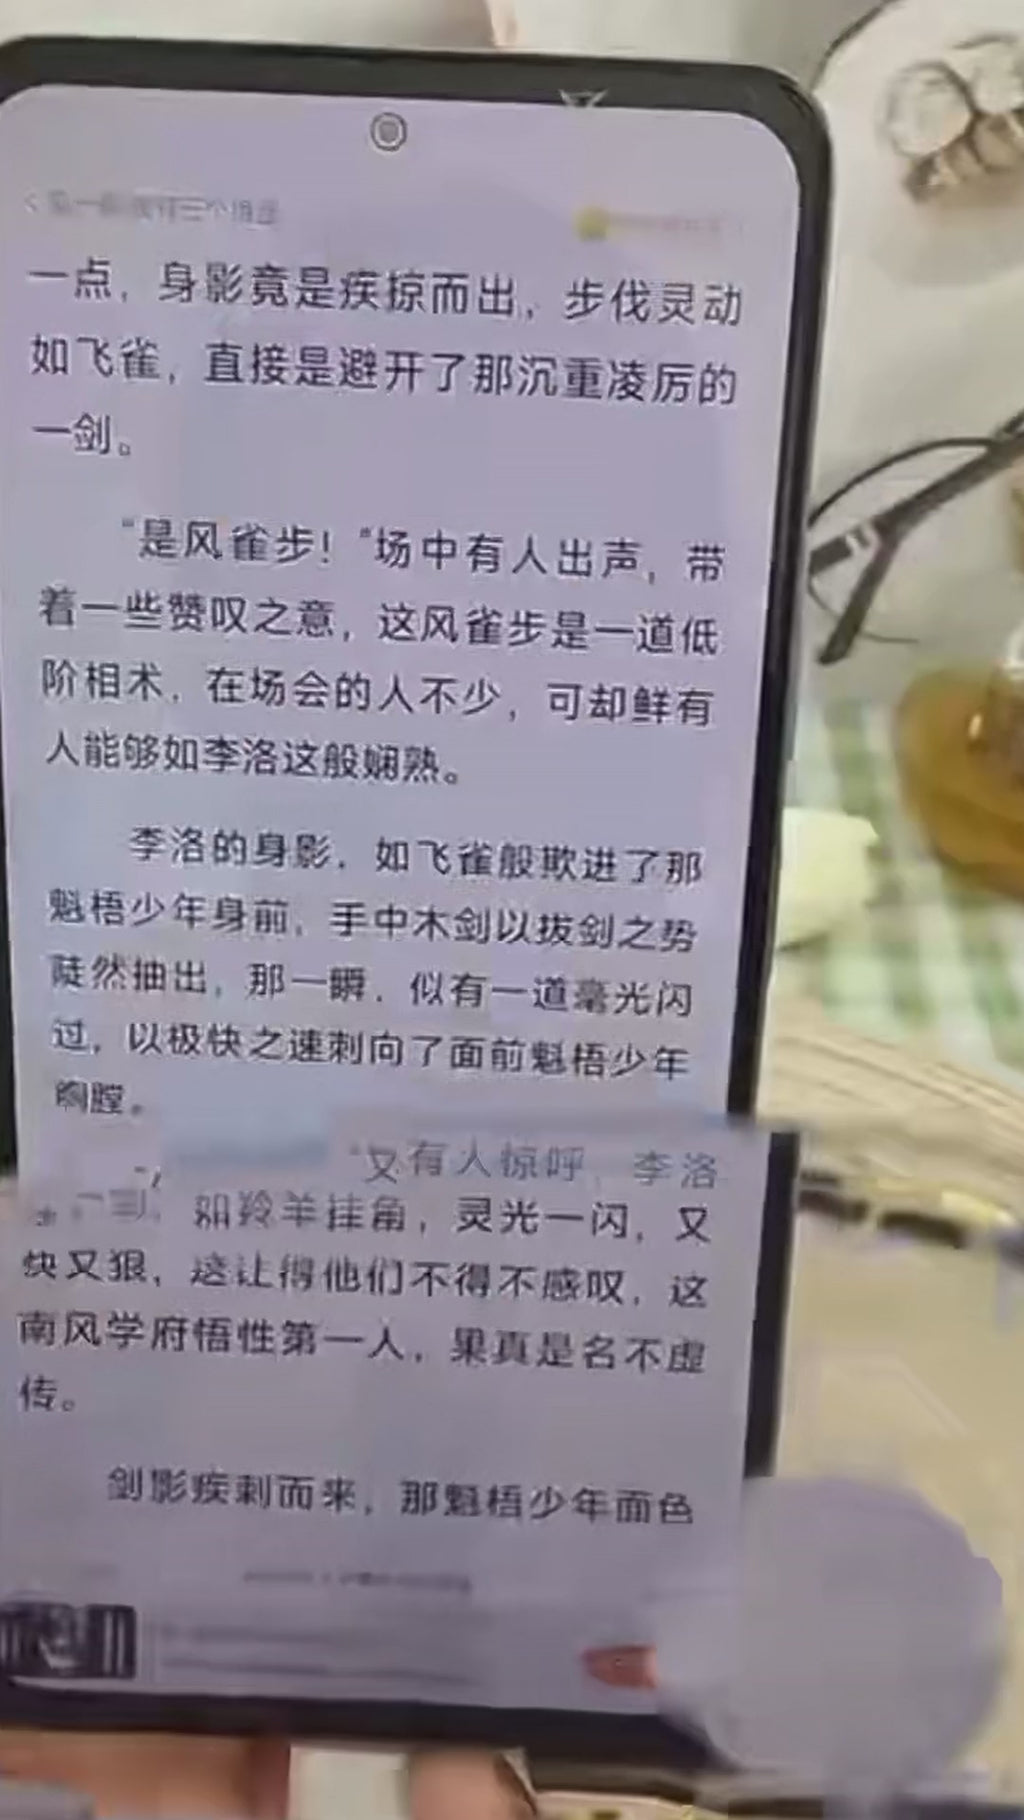 一点，身影竟是疾掠而出，步伐灵动
如飞雀，直接是避开了那沉重凌厉的
一剑。
“是风雀步！”场中有人出声，带
着一些赞叹之意，这风雀步是一道低
阶相术，在场会的人不少，可却鲜有
人能够如李洛这般娴熟。
李洛的身影，如飞雀般欺进了那
魁梧少年身前，手中木剑以拔剑之势
陡然抽出，那一瞬，似有一道毫光闪
过，以极快之速刺向了面前魁梧少年
胸膛。
”又有人惊呼，李洛
如羚羊挂角，灵光一闪，又
快又狠，这让得他们不得不感叹，这
南风学府悟性第一人，果真是名不虚
传。
剑影疾刺而来，那魁梧少年面色